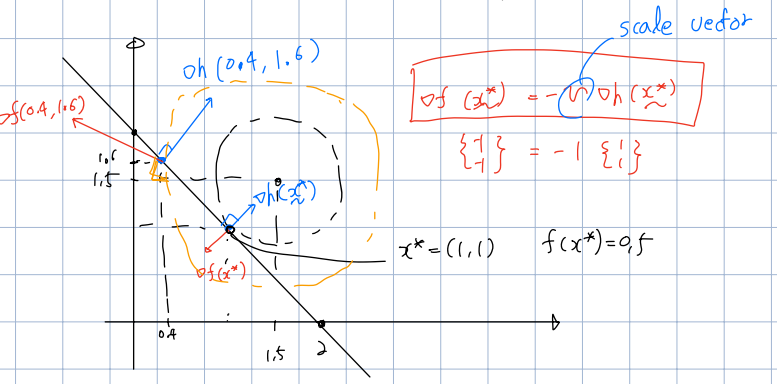 scale vector
∇h (0.4, 1.6)
∇f(0.4, 1.6)
∇f (x*) = - v ∇h (x*)
{-1 -1} = -1 {1 1}
1.6
1,5
∇h(x*)
x* = (1,1) f(x*)=0,5
∇f(x*)
0.4
1,5
2